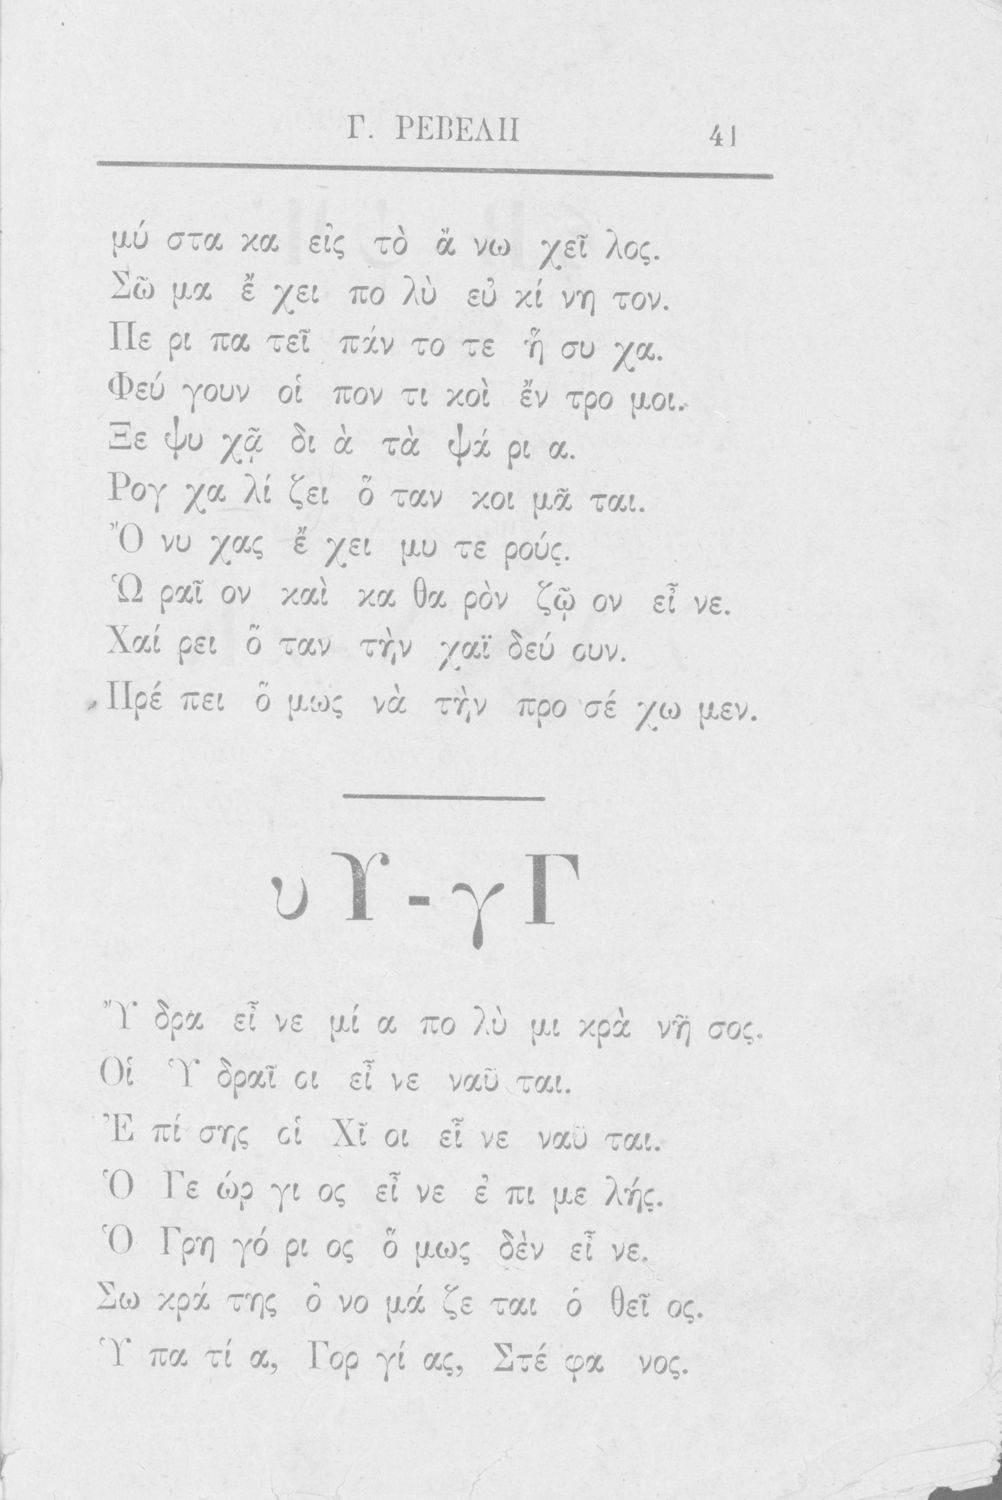 Γ. ΡΕΒΕΛΗ 41
μύ στα κα εἰς τὸ ἄ νω χεῖ λος.
Σῶ μα ἔ χει πο λὺ εὐ κί νη τον.
Πε ρι πα τεῖ πάν το τε ἥ συ χα.
Φεύ γουν οἱ πον τι κοὶ ἔν τρο μοι.
Ξε ψυ χᾷ δι ὰ τὰ ψά ρι α.
Ρογ χα λί ζει ὅ ταν κοι μᾶ ται.
Ὄ νυ χας ἔ χει μυ τε ρούς.
Ὡ ραῖ ον καὶ κα θα ρὸν ζῷ ον εἶ νε.
Χαί ρει ὅ ταν τὴν χαϊ δεύ ουν.
Πρέ πει ὅ μως νὰ τὴν προ σέ χω μεν.
υ Υ - γ Γ
Ὕ δρα εἶ νε μί α πο λὺ μι κρὰ νῆ σος.
Οἱ Ὑ δραῖ οι εἶ νε ναῦ ται.
Ἐ πί σης οἱ Χῖ οι εἶ νε ναῦ ται.
Ὁ Γε ώρ γι ος εἶ νε ἐ πι με λής.
Ὁ Γρη γό ρι ος ὅ μως δὲν εἶ νε.
Σω κρά της ὀ νο μά ζε ται ὁ θεῖ ος.
Ὑ πα τί α, Γορ γί ας, Στέ φα νος.